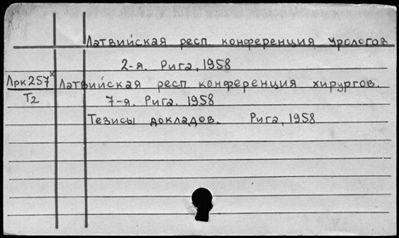 Латвийская респ конференция урологов
2-я. Рига, 1958
Лрк257х Латвийская респ конференция хирургов.
Т2 7-я. Рига. 1958
Тезисы докладов. Рига, 1958